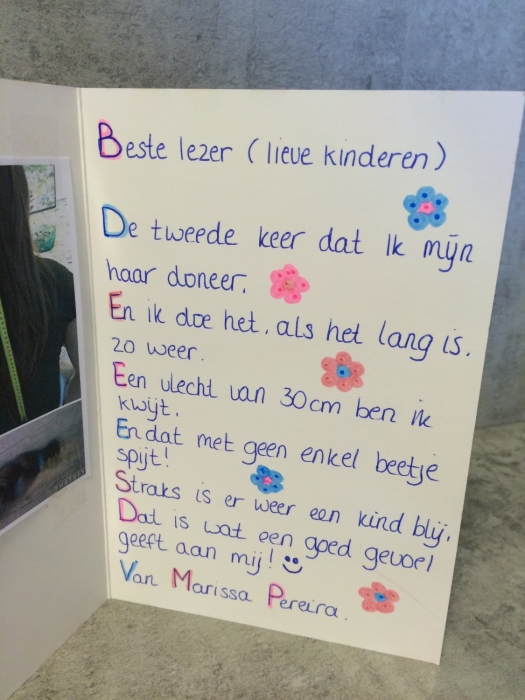 Beste lezer (lieve kinderen)
De tweede keer dat ik mijn
haar doneer.
En ik doe het, als het lang is.
zo weer.
Een vlecht van 30cm ben ik
kwijt.
En dat met geen enkel beetje
spijt!
Straks is er weer een kind blij.
Dat is wat een goed gevoel
geeft aan mij!
Van Marissa Pereira.